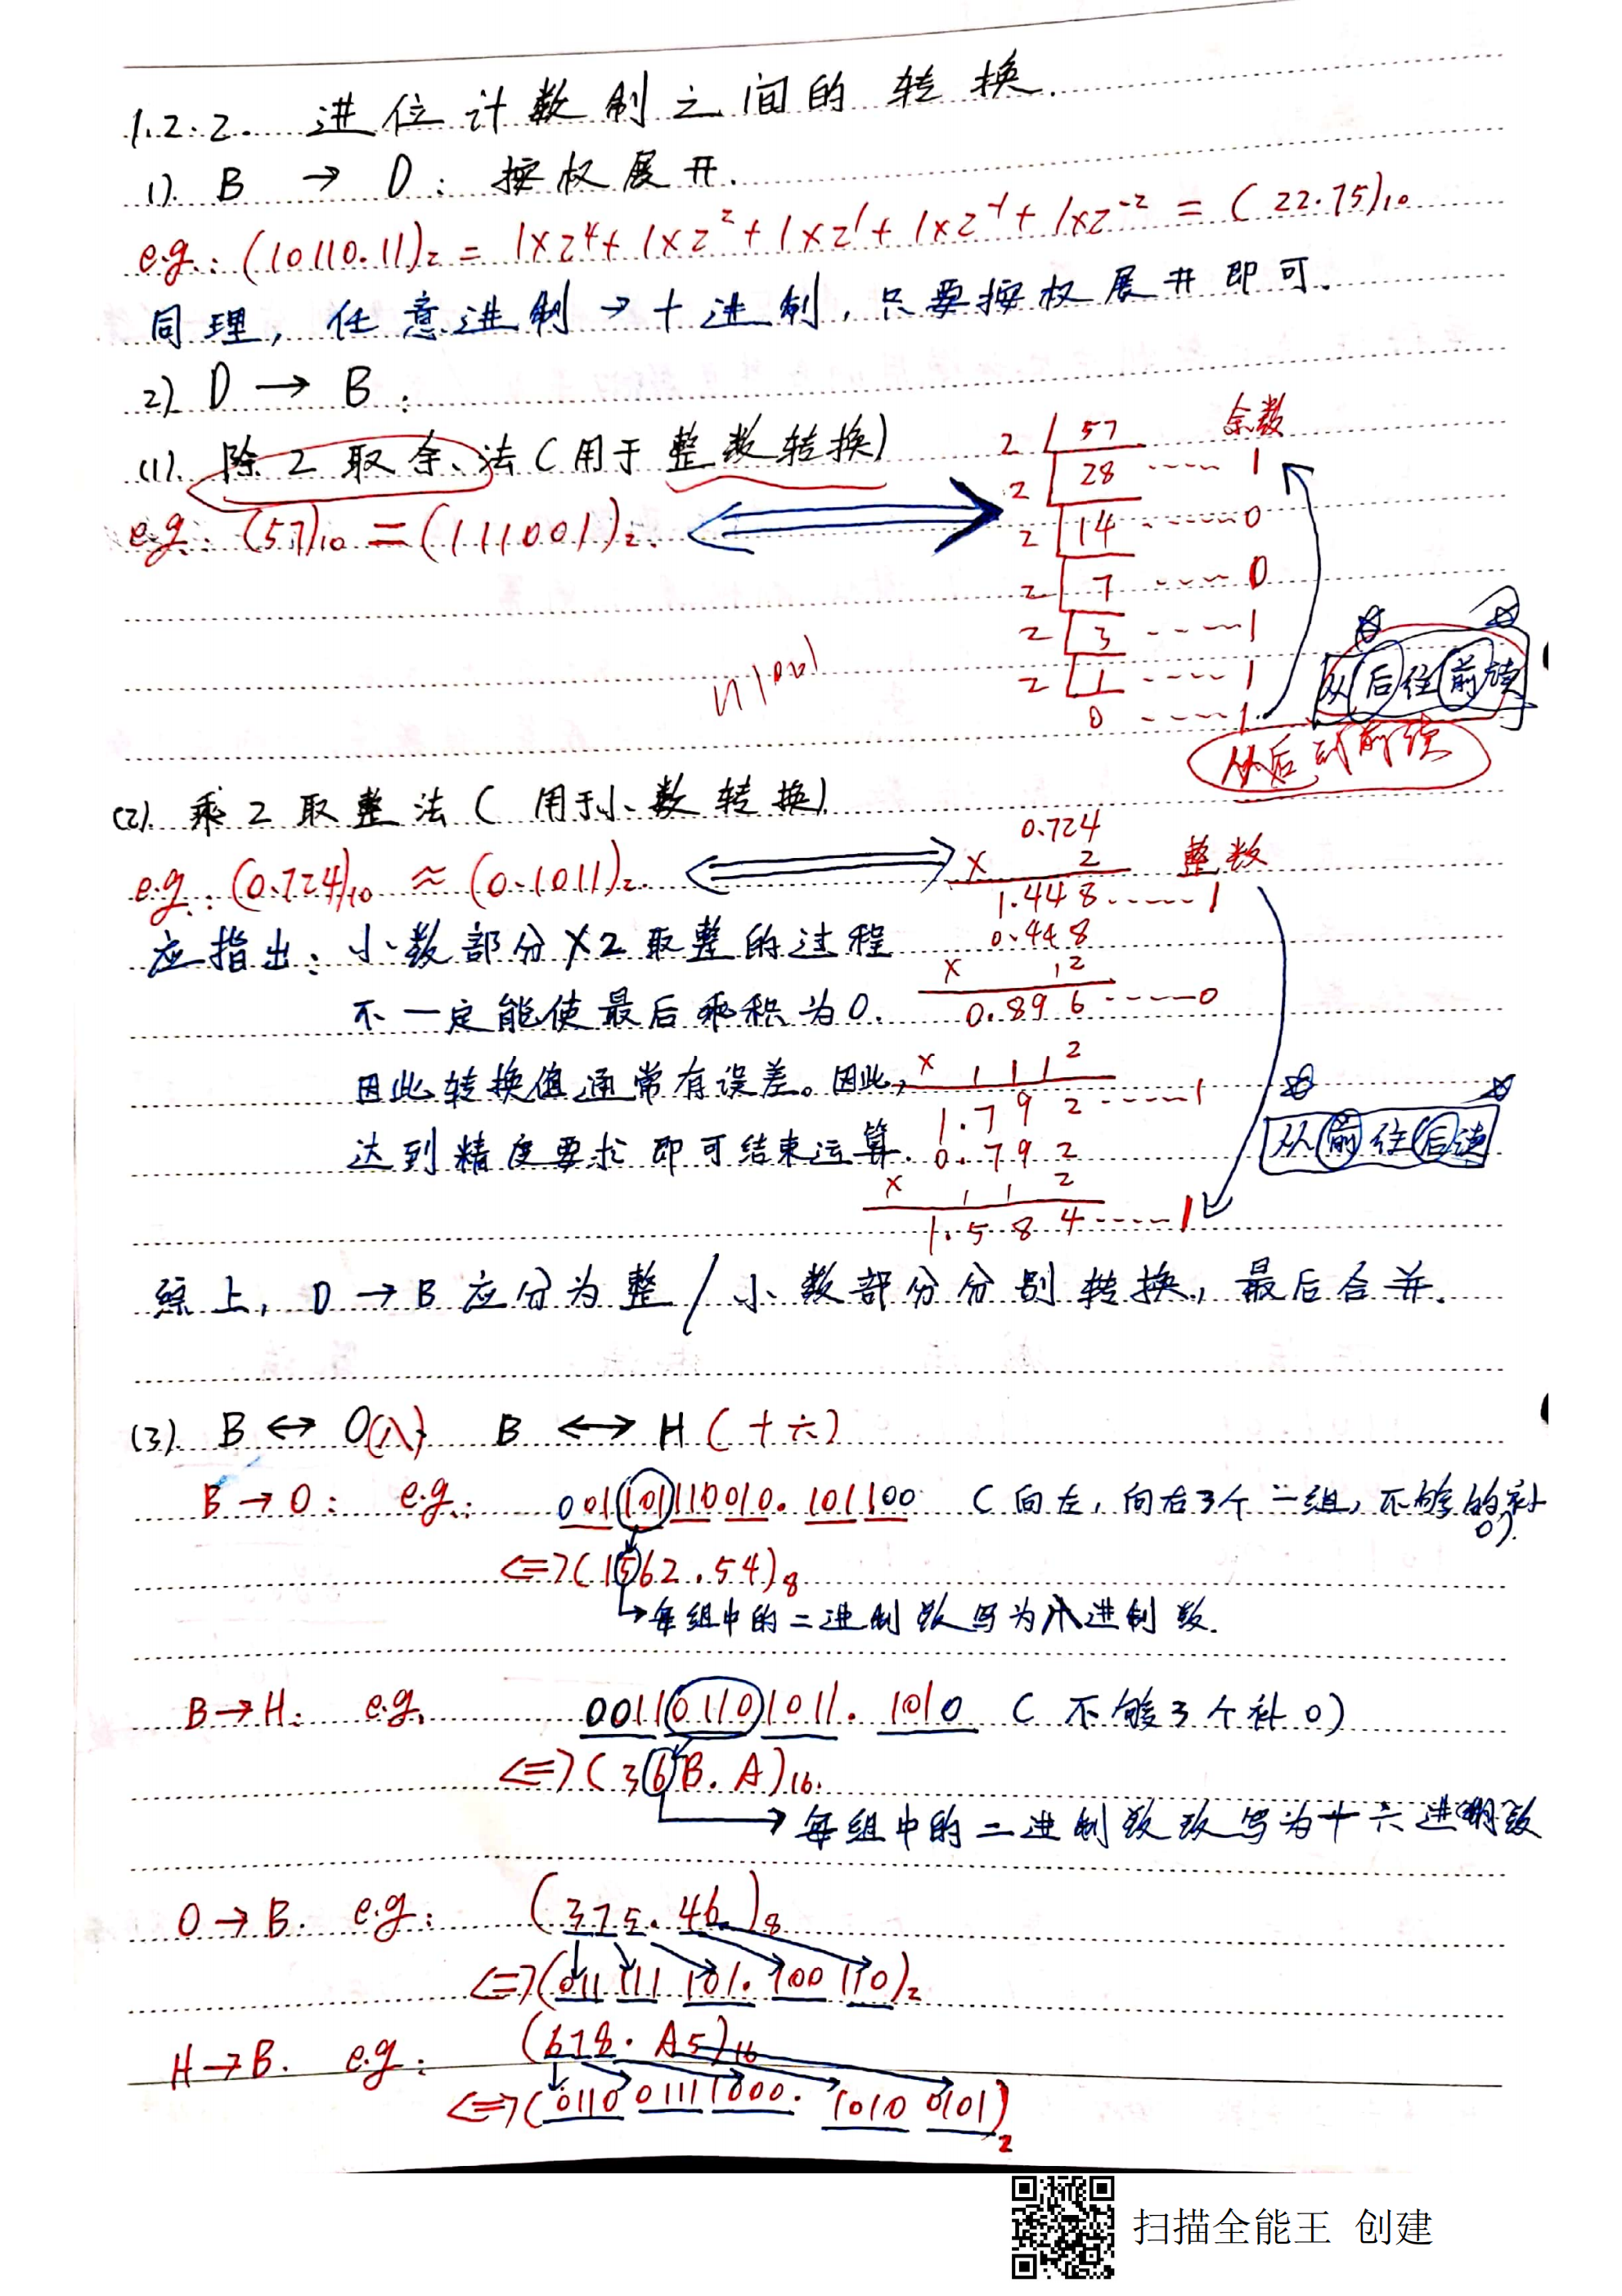 1.2.2. 进位计数制之间的转换.
1). B → D: 按权展开.
e.g.: (10110.11)₂ = 1×2⁴+1×2²+1×2¹+1×2⁻¹+1×2⁻² = (22.75)₁₀
同理, 任意进制→十进制, 只要按权展开即可.
2). D → B:
(1). 除2取余法(用于整数转换)
e.g.: (57)₁₀ = (111001)₂.
余数
2 57
2 28 ---- 1
2 14 ---- 0
2 7 ---- 0
2 3 ---- 1
2 1 ---- 1
0 ---- 1
从后往前读
从后到前读
111001
(2). 乘2取整法(用于小数转换)
e.g.: (0.724)₁₀ ≈ (0.1011)₂
0.724
× 2 整数
1.448 ----- 1
0.448
× 12
0.896 ---- 0
× 1112
1.792 ----- 1
0.792
× 112
1.584 ----- 1
从前往后读
应指出: 小数部分×2取整的过程
不一定能使最后乘积为0.
因此转换值通常有误差。因此,
达到精度要求即可结束运算.
综上, D→B应分为整/小数部分分别转换, 最后合并.
(3). B ↔ O(八) B ↔ H(十六)
B→O: e.g.: 001101110010.101100 (向左,向右3个一组,不够的补0).
<=>(1562.54)₈
每组中的二进制数写为八进制数.
B→H: e.g. 001101101011.1010 (不够3个补0)
<=>(36B.A)₁₆.
每组中的二进制数改写为十六进制数
O→B. e.g: (375.46)₈
<=>(011 111 101.100 110)₂
H→B. e.g: (678.A5)₁₆
<=>(0110 0111 1000.1010 0101)₂
扫描全能王 创建